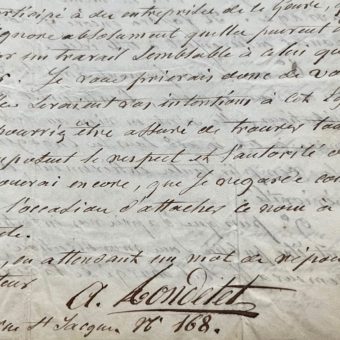 participé à des entreprises de ce genre,
ignore absolument quelles peuvent
un travail semblable à celui que
Je vous prierais donc de vo
les seraient vos intentions à cet
pourriez être assuré de trouver tou
le respect et l'autorité
encore, que je regarde co
l'occasion d'attacher ce nom à
de.
, en attendant un mot de répon
teur
A. Rondelet
rue St Jacques. N° 168.